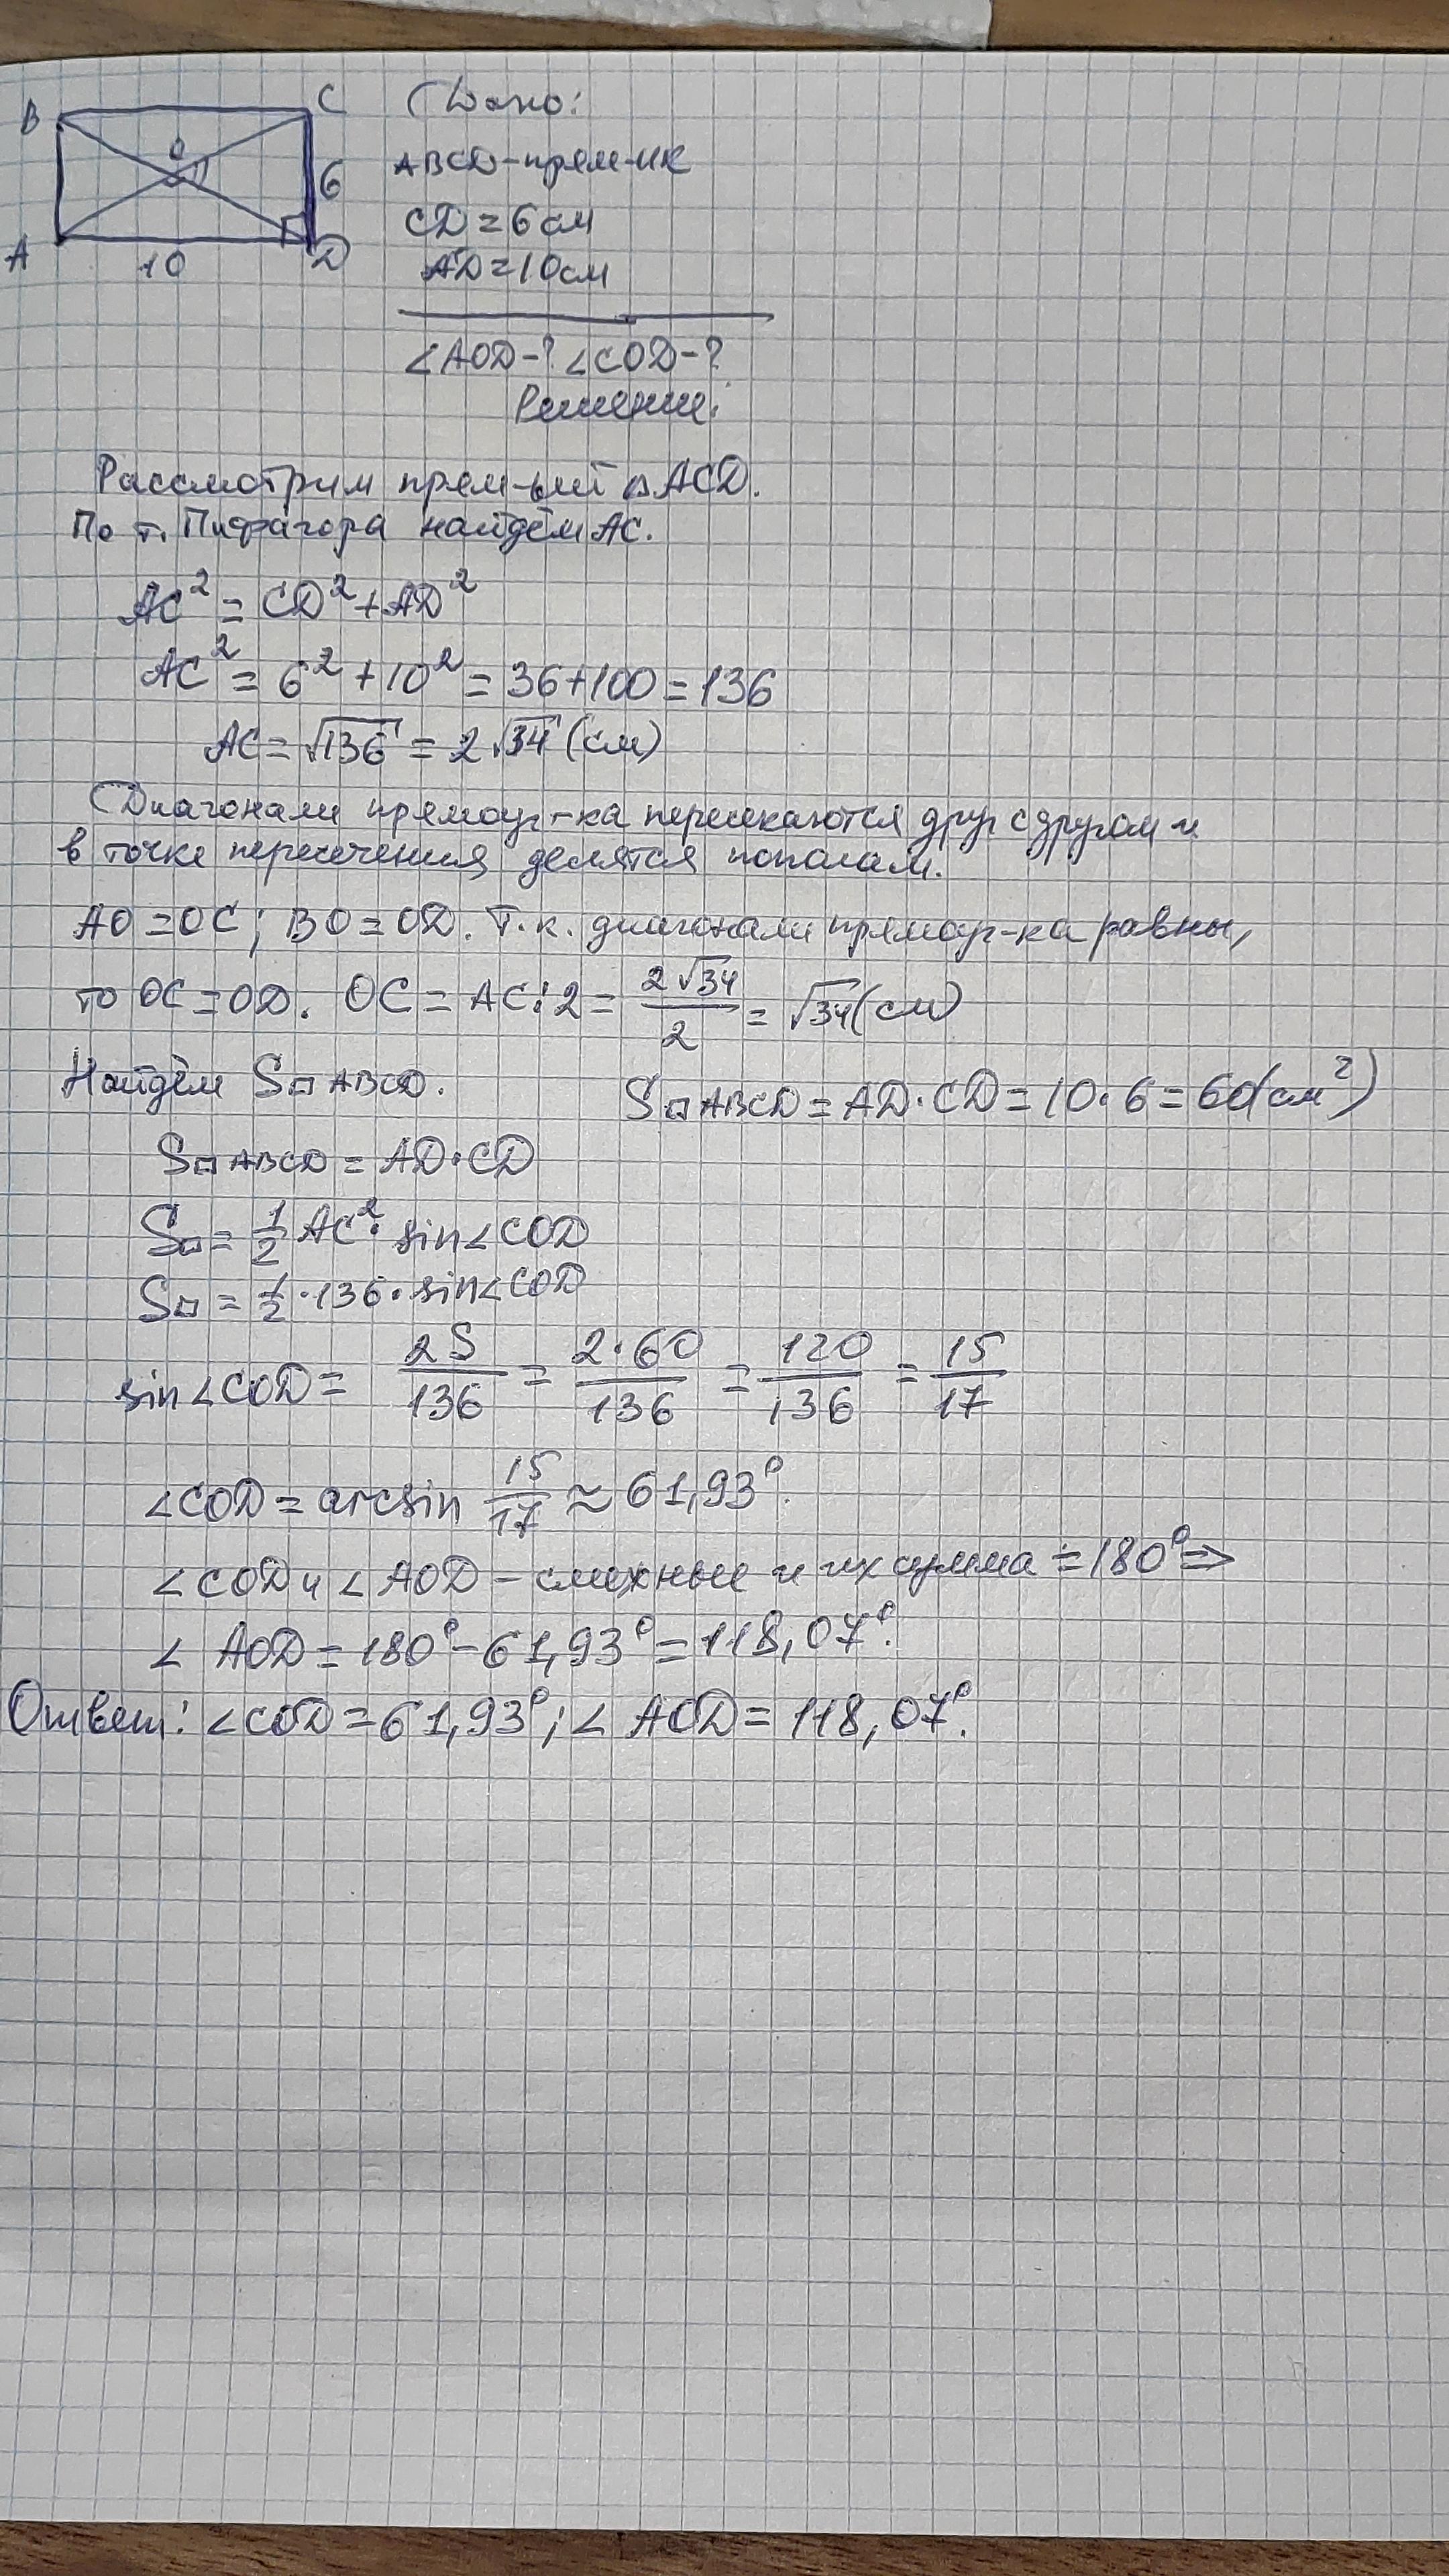 B
C
O
6
A
10
D
Дано:
ABCD-прям-ик
CD=6см
AD=10см
∠AOD-? ∠COD-?
Решение:
Рассмотрим прям-ый △ACD.
По т. Пифагора найдём AC.
AC²=CD²+AD²
AC²=6²+10²=36+100=136
AC=√136=2√34(см)
Диагонали прямоуг-ка пересекаются друг с другом и
в точке пересечения делятся пополам.
AO=OC; BO=OD. Т.к. диагонали прямоуг-ка равны,
то OC=OD. OC=AC:2=2√34/2=√34(см)
Найдём S▭ABCD.
S▭ABCD=AD·CD=10·6=60(см²)
S▭ABCD=AD·CD
S▭=1/2AC²·sin∠COD
S▭=1/2·136·sin∠COD
sin∠COD=2S/136=2·60/136=120/136=15/17
∠COD=arcsin 15/17≈61,93°.
∠COD и ∠AOD-смежные и их сумма =180°⇒
∠AOD=180°-61,93°=118,07°.
Ответ: ∠COD=61,93°; ∠AOD=118,07°.